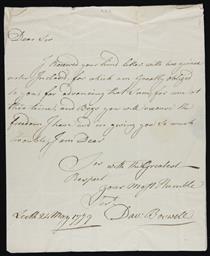 Dear Sir
I Received your kind letter with two guineas
order Inclosed for which am Greatly obliged
to you, for advancing that Sum for me at
this time, and Begs you will excuse the
freedom I have and am giving you So much
trouble, I am Dear
Sir with the Greatest
Respect
your Most Humble
Ser
Leith 24 May 1779
Dav Boswell